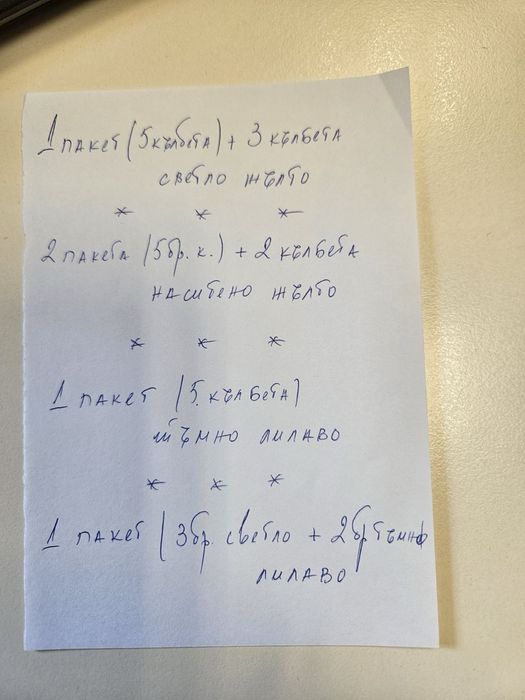 1 пакет (5 кълбета) + 3 кълбета
светло жълто
* * *
2 пакета (5 бр. к.) + 2 кълбета
наситено жълто
* * *
1 пакет (5 кълбета)
тъмно лилаво
* * *
1 пакет (3 бр. светло + 2 бр тъмно
лилаво